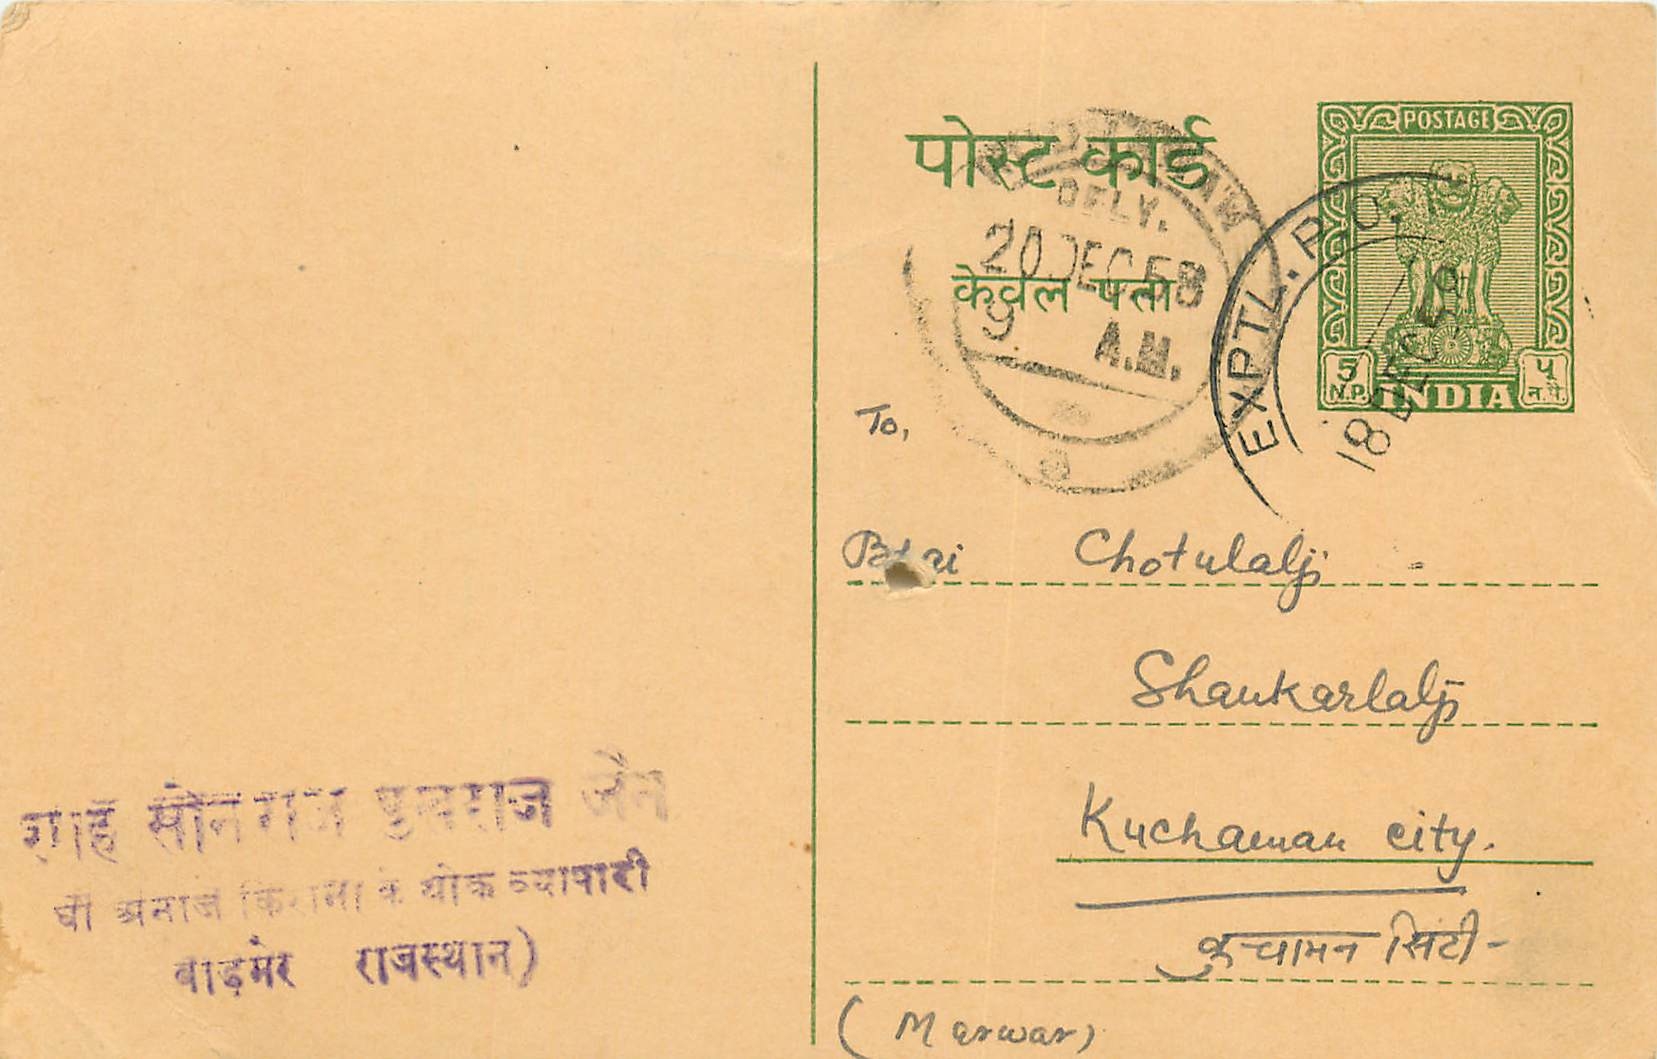 पोस्ट कार्ड
केवल पता
POSTAGE
5 N.P.
INDIA
५ न.पै.
DELY.
20 DEC 58
9 A.M.
EXPTL. P.O.
18 DEC 58
To,
Chotulalji
Shankarlalji
Kuchaman city.
कुचामन सिटी-
(Marwar)
शाह सोनराज पुखराज जैन
घी अनाज किराना के थोक व्यापारी
बाड़मेर राजस्थान)